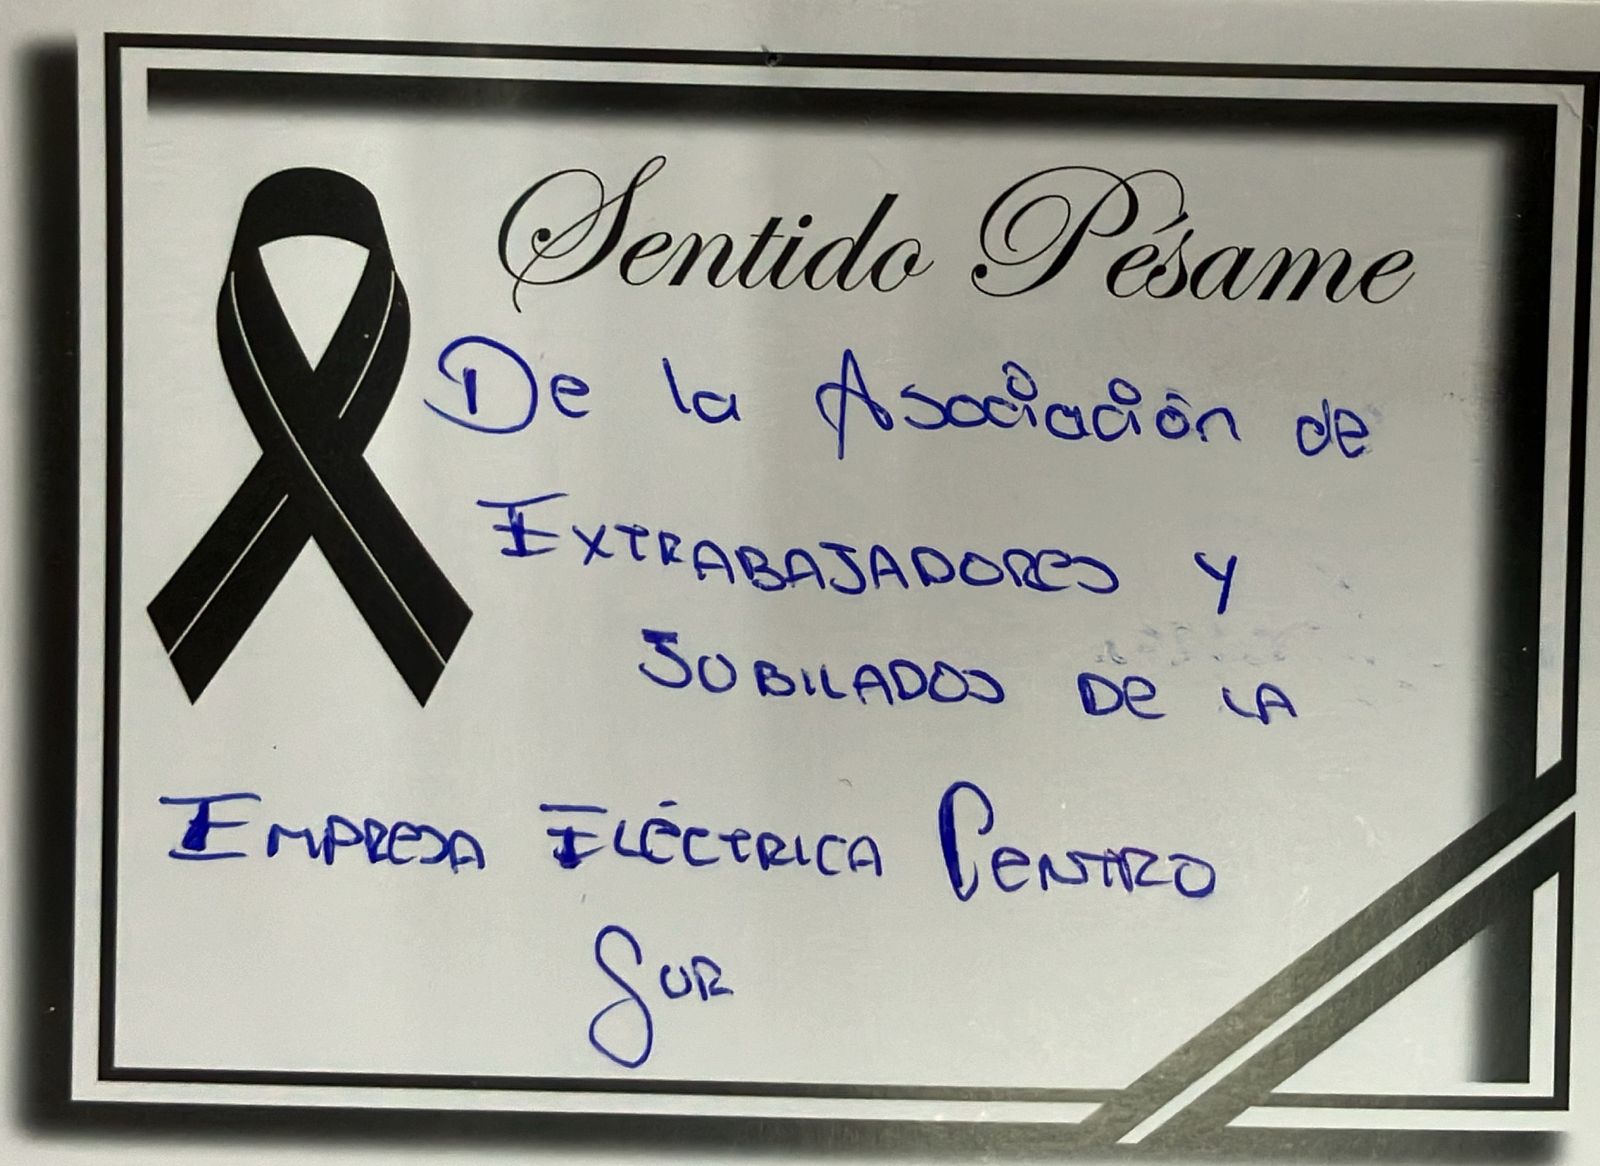 Sentido Pésame
De la Asociación de
EXTRABAJADORES Y
JUBILADOS DE LA
EMPRESA ELÉCTRICA CENTRO
SUR